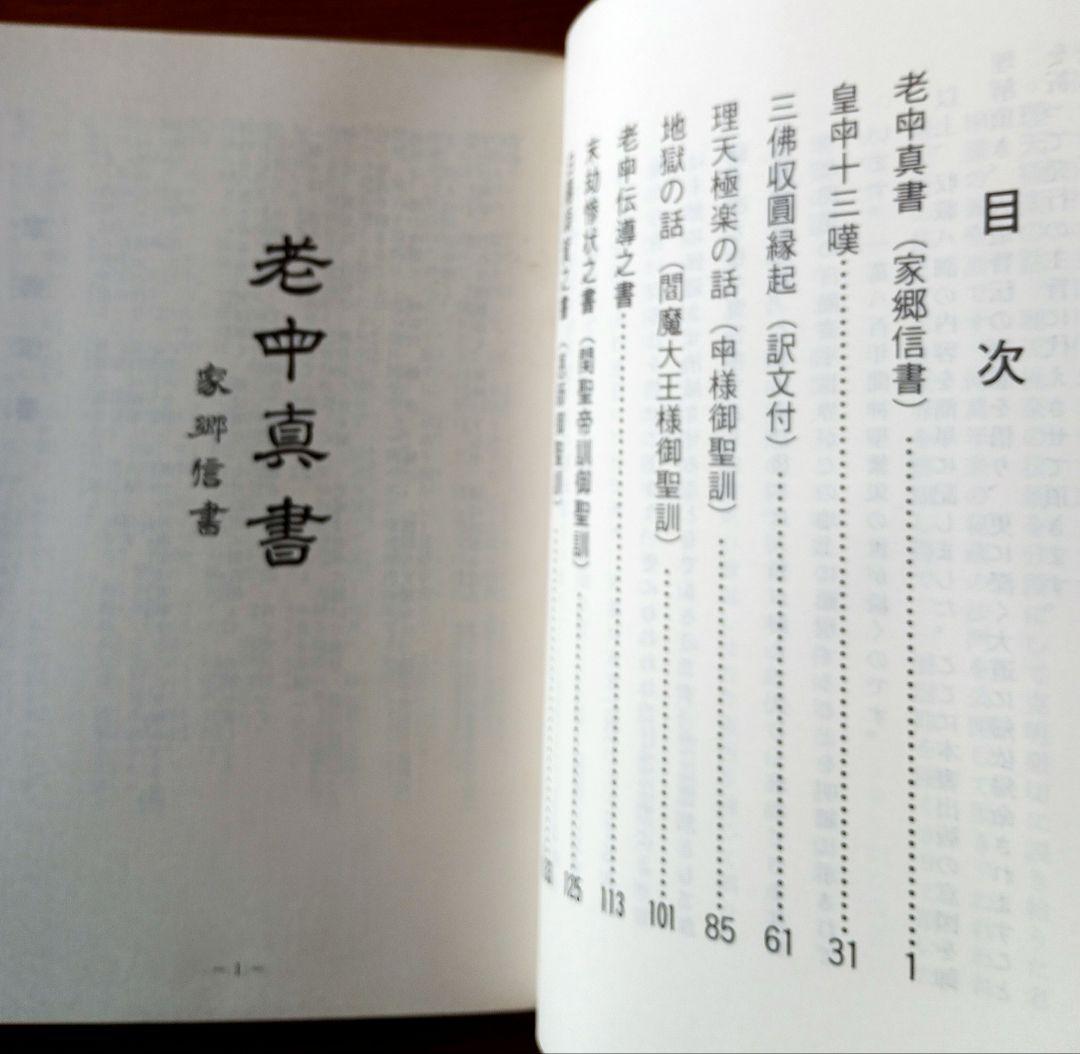 目次
老中真書（家郷信書）……1
皇中十三嘆……31
三佛収圓縁起（訳文付）……61
理天極楽の話（中様御聖訓）……85
地獄の話（閻魔大王様御聖訓）……101
老中伝導之書……113
末劫惨状之書（関聖帝訓御聖訓）……125
老中真書
家郷信書
～1～